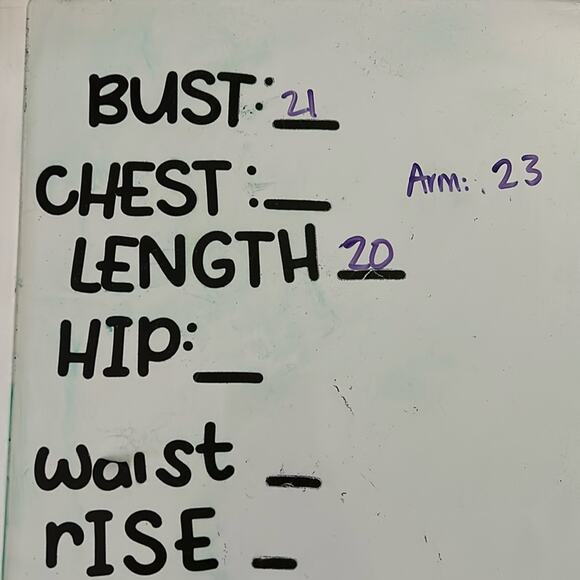 BUST: 21
CHEST: Arm: 23
LENGTH 20
HIP:
waist
rISE